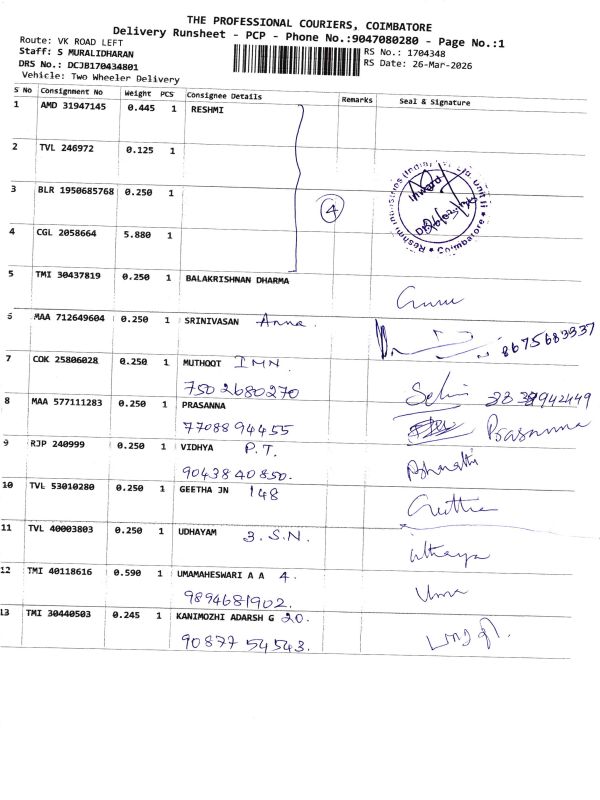 THE PROFESSIONAL COURIERS, COIMBATORE
Delivery Runsheet - PCP - Phone No.:9047080280 - Page No.:1
Route: VK ROAD LEFT
Staff: S MURALIDHARAN
DRS No.: DCJB170434801
Vehicle: Two Wheeler Delivery
RS No.: 1704348
RS Date: 26-Mar-2026
S No Consignment No Weight PCS Consignee Details Remarks Seal & Signature
1 AMD 31947145 0.445 1 RESHMI
2 TVL 246972 0.125 1
3 BLR 1950685768 0.250 1
4
4 CGL 2058664 5.880 1
Reshmi Industries (India) Unit II
Coimbatore
5 TMI 30437819 0.250 1 BALAKRISHNAN DHARMA
Guru
6 MAA 712649604 0.250 1 SRINIVASAN Anna.
8675683337
7 COK 25806028 0.250 1 MUTHOOT IMN
7502680270
8 MAA 577111283 0.250 1 PRASANNA
7708894455 Prasanna
9 RJP 240999 0.250 1 VIDHYA P.T.
9043840850. Bharathi
10 TVL 53010280 0.250 1 GEETHA JN 148
Geetha
11 TVL 40003803 0.250 1 UDHAYAM 3.S.N.
uthaya
12 TMI 40118616 0.590 1 UMAMAHESWARI A A 4.
9894681902. Uma
13 TMI 30440503 0.245 1 KANIMOZHI ADARSH G 20.
90877 54543.